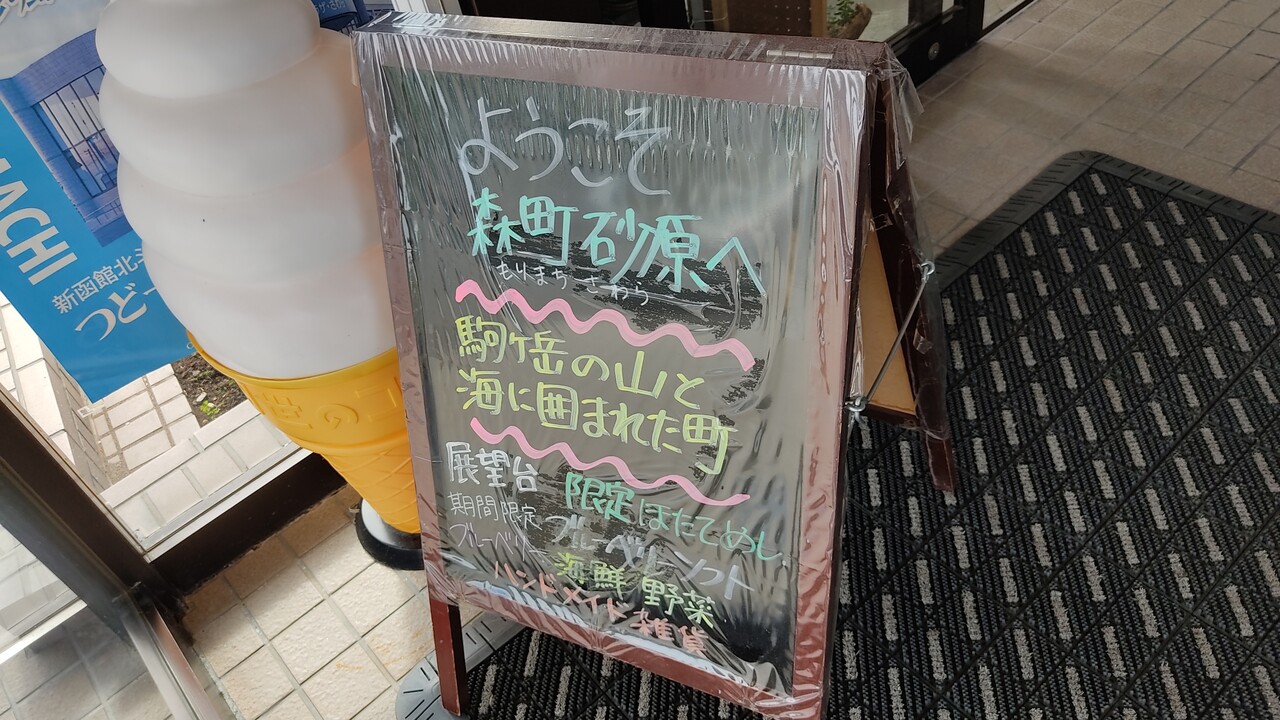 ようこそ
森町砂原へ
もりまち さわら
駒ヶ岳の山と
海に囲まれた町
展望台
限定ほたてめし
期間限定
ブルーベリー
ブルーベリーソフト
海鮮 野菜
ハンドメイド雑貨
MACHI
新函館北
つどー